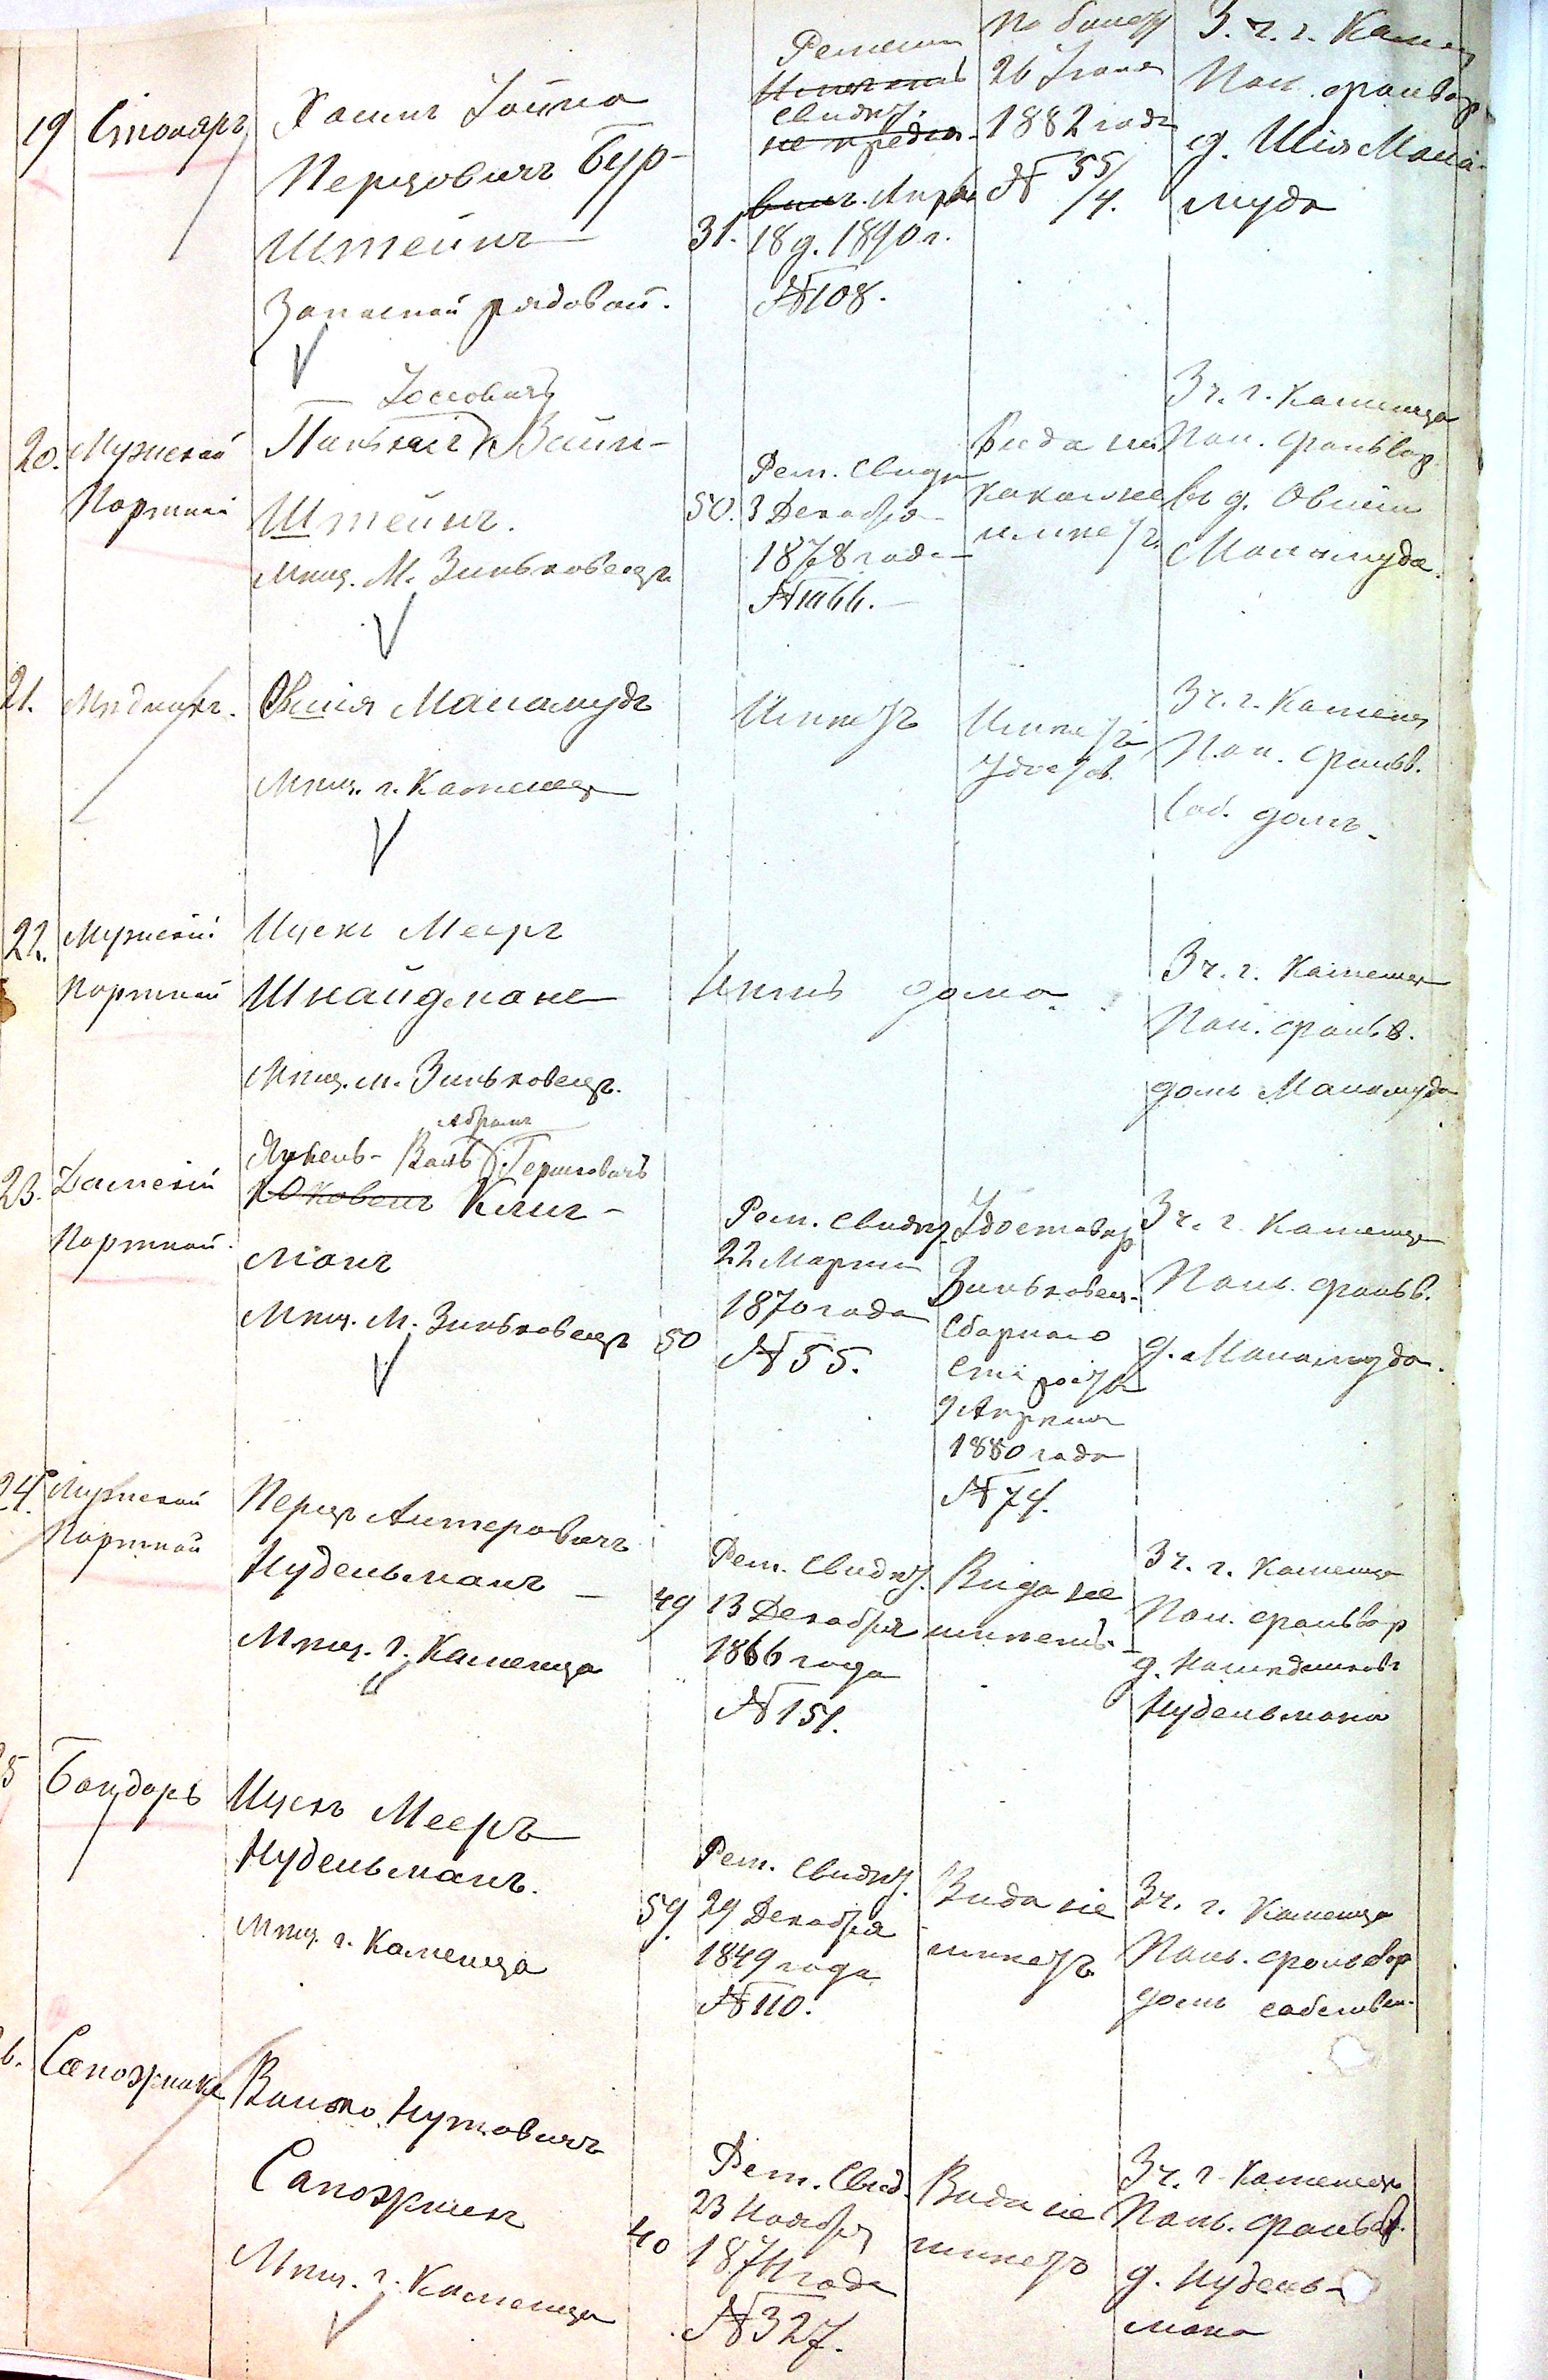 19 Столяръ
Хаимъ Іойна
Перцовичъ Бур-
штейнъ
Запасный рядовой.
31.
Ремеслн
свидѣт.
18 д. 1890 г.
№ 108.
По билету
26 Іюня
1882 года
№ 55/4.
3. ч. г. Камен
Пол. фольвар
д. Шія Мала-
муда
20. Мужской
Портной
Іоссовичъ
Вайн-
штейнъ.
Мѣщ. М. Зиньковецъ
50.
Рем. Свидѣт
3 Декабря
1878 года
Вида ни
какого не
имѣетъ.
3 ч. г. Каменца
Пол. фольвар
въ д. Овшія
Маламуда.
21. Мѣдникъ.
Овшія Маламудъ
Мѣщ. г. Каменца
Имѣетъ
Имѣетъ
удостов.
3 ч. г. Каменец
Пол. фольв.
Соб. домъ.
22. Мужской
Портной
Ицекъ Мееръ
Шнайдманъ
Мѣщ. м. Зиньковецъ.
Нѣтъ дома.
3 ч. г. Каменец
Пол. фольв.
домъ Маламуда
23. Дамскій
Портной.
Абрамъ
Янкель-Вольъ Гершковичъ
Клиг-
манъ
Мѣщ. М. Зиньковецъ
50
Рем. Свидѣт
22 Марта
1870 года
№ 55.
Удостовѣр
Зиньковец.
Сборнаго
Старосты
9 Апрѣля
1880 года
№ 74.
3 ч. г. Каменца
Поль. фольв.
д. Маламуда.
24. Мужской
Портной
Перецъ Алтеровичъ
Нудельманъ
Мѣщ. г. Каменца
49
Рем. Свидѣт.
13 Декабря
1866 года
№ 151.
Вида не
имѣетъ.
3 ч. г. Каменца
Пол. фольвар
д. Наслѣдниковъ
Нудельмана
5 Бондарь
Ицекъ Мееръ
Нудельманъ.
Мѣщ. г. Каменца
59.
Рем. Свидѣт.
29 Декабря
1849 года
№ 110.
Вида не
имѣетъ
3 ч. г. Каменца
Поль. фольвар
домъ собствен.
6. Сапожникъ
Волько Нутовичъ
Сапожникъ
Мѣщ. г. Каменца
40
Рем. Свид.
23 Ноября
1874 года
№ 327.
Вида не
имѣетъ
3 ч. г. Каменца
Поль. фольв.
д. Нудель-
мана